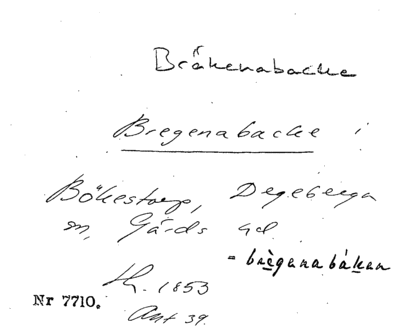 Bräkenabacke
Bregenabacke i
Bökestorp, Degeberga
sn, Gärds hd.
- brègenabákan
th. 1853
Nr 7710.
Ant 39.